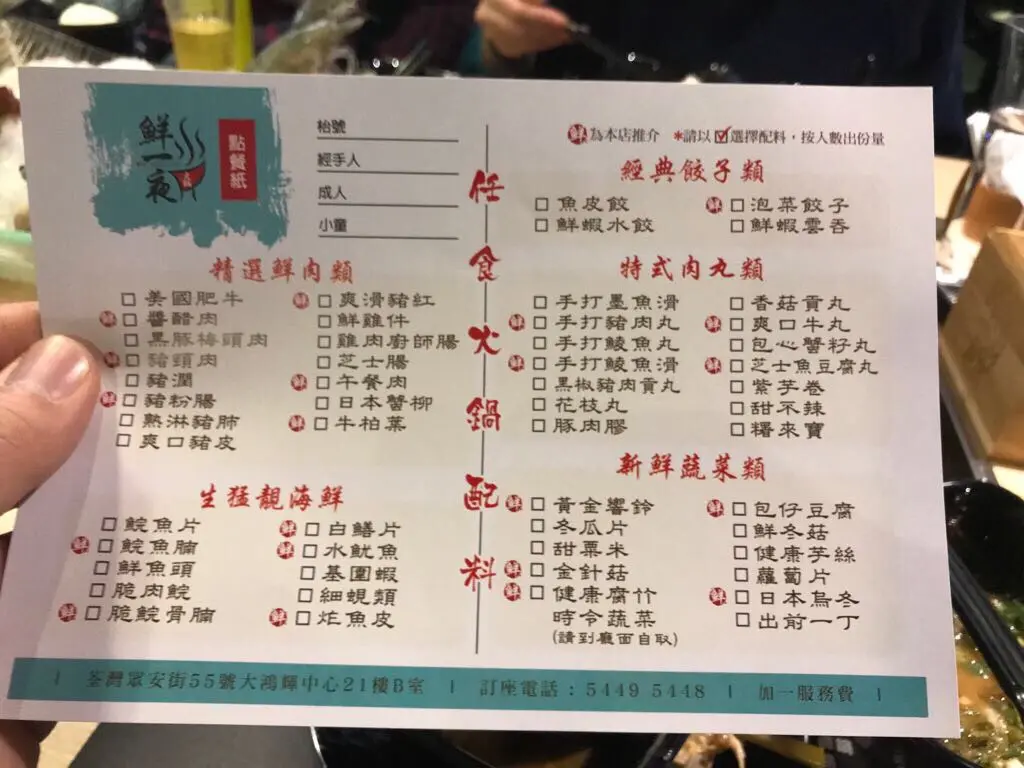 鮮一夜
點餐紙
枱號
經手人
成人
小童
任食火鍋配料
鮮為本店推介 *請以☑選擇配料，按人數出份量
精選鮮肉類
□ 美國肥牛
鮮 □ 醬醋肉
□ 黑豚梅頭肉
鮮 □ 豬頸肉
□ 豬潤
鮮 □ 豬粉腸
□ 熟淋豬肺
□ 爽口豬皮
鮮 □ 爽滑豬紅
□ 鮮雞件
□ 雞肉廚師腸
□ 芝士腸
鮮 □ 午餐肉
□ 日本蟹柳
鮮 □ 牛柏葉
生猛靚海鮮
□ 鯇魚片
鮮 □ 鯇魚腩
□ 鮮魚頭
□ 脆肉鯇
鮮 □ 脆鯇骨腩
鮮 □ 白鱔片
鮮 □ 水魷魚
□ 基圍蝦
□ 細蜆類
鮮 □ 炸魚皮
經典餃子類
□ 魚皮餃
□ 鮮蝦水餃
鮮 □ 泡菜餃子
□ 鮮蝦雲吞
特式肉丸類
□ 手打墨魚滑
鮮 □ 手打豬肉丸
□ 手打鯪魚丸
鮮 □ 手打鯪魚滑
□ 黑椒豬肉貢丸
□ 花枝丸
□ 豚肉膠
□ 香菇貢丸
鮮 □ 爽口牛丸
□ 包心蟹籽丸
鮮 □ 芝士魚豆腐丸
□ 紫芋卷
□ 甜不辣
□ 糬來寶
新鮮蔬菜類
鮮 □ 黃金響鈴
□ 冬瓜片
□ 甜粟米
鮮 □ 金針菇
鮮 □ 健康腐竹
時令蔬菜
(請到廳面自取)
鮮 □ 包仔豆腐
□ 鮮冬菇
□ 健康芋絲
□ 蘿蔔片
鮮 □ 日本烏冬
□ 出前一丁
| 荃灣眾安街55號大鴻輝中心21樓B室 | 訂座電話：5449 5448 | 加一服務費 |